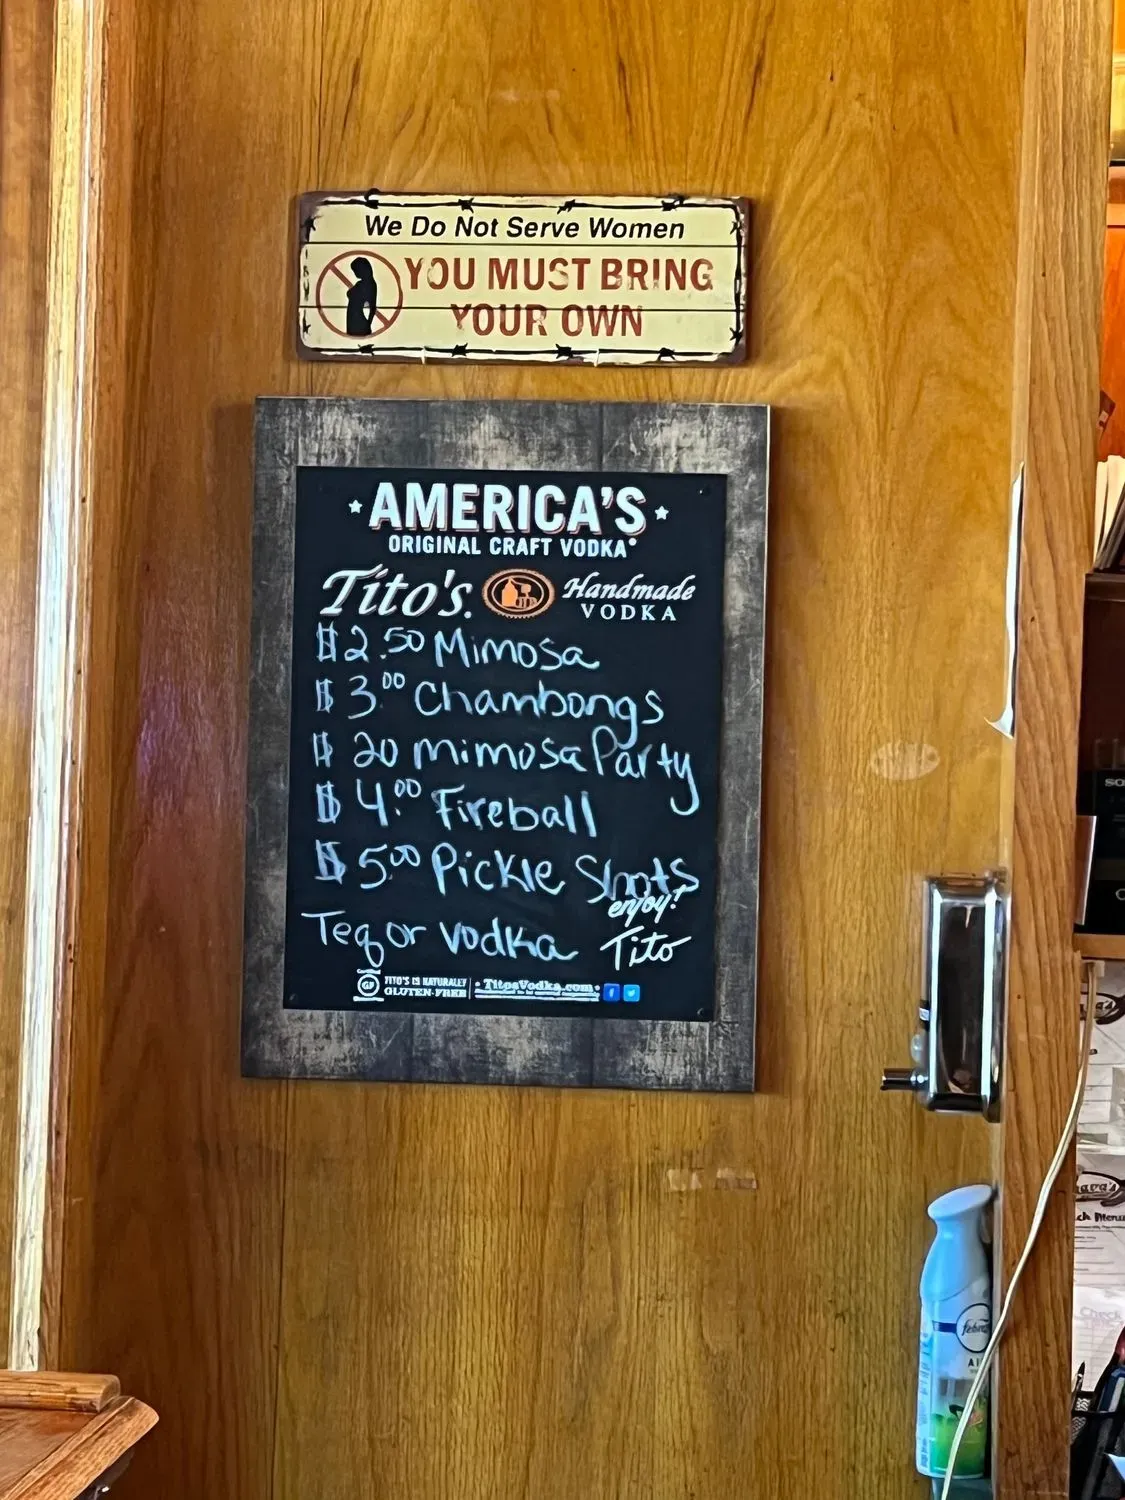 We Do Not Serve Women
YOU MUST BRING
YOUR OWN
AMERICA'S
ORIGINAL CRAFT VODKA®
Tito's Handmade
VODKA
$2.50 Mimosa
$3.00 Chambongs
$20 mimosa Party
$4.00 Fireball
$5.00 Pickle Shots
enjoy!
Teq or vodka
Tito
Certified
GF
TITO'S IS NATURALLY
GLUTEN-FREE
TitosVodka.com
febreze
AI